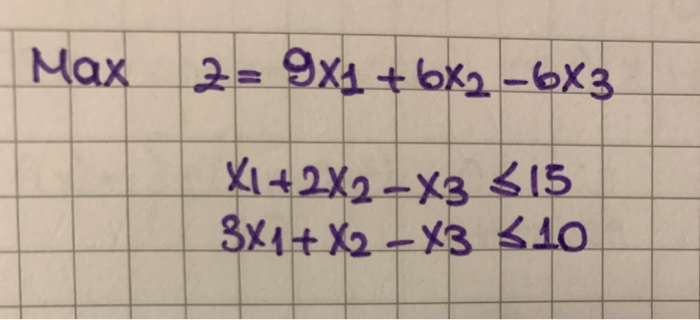 Max z = 9x1 + 6x2 - 6x3
x1 + 2x2 - x3 ≤ 15
3x1 + x2 - x3 ≤ 10